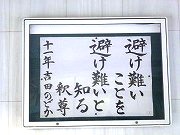 避け難い
ことを
避け難いと
知る
釈尊
十一年 吉田のどか